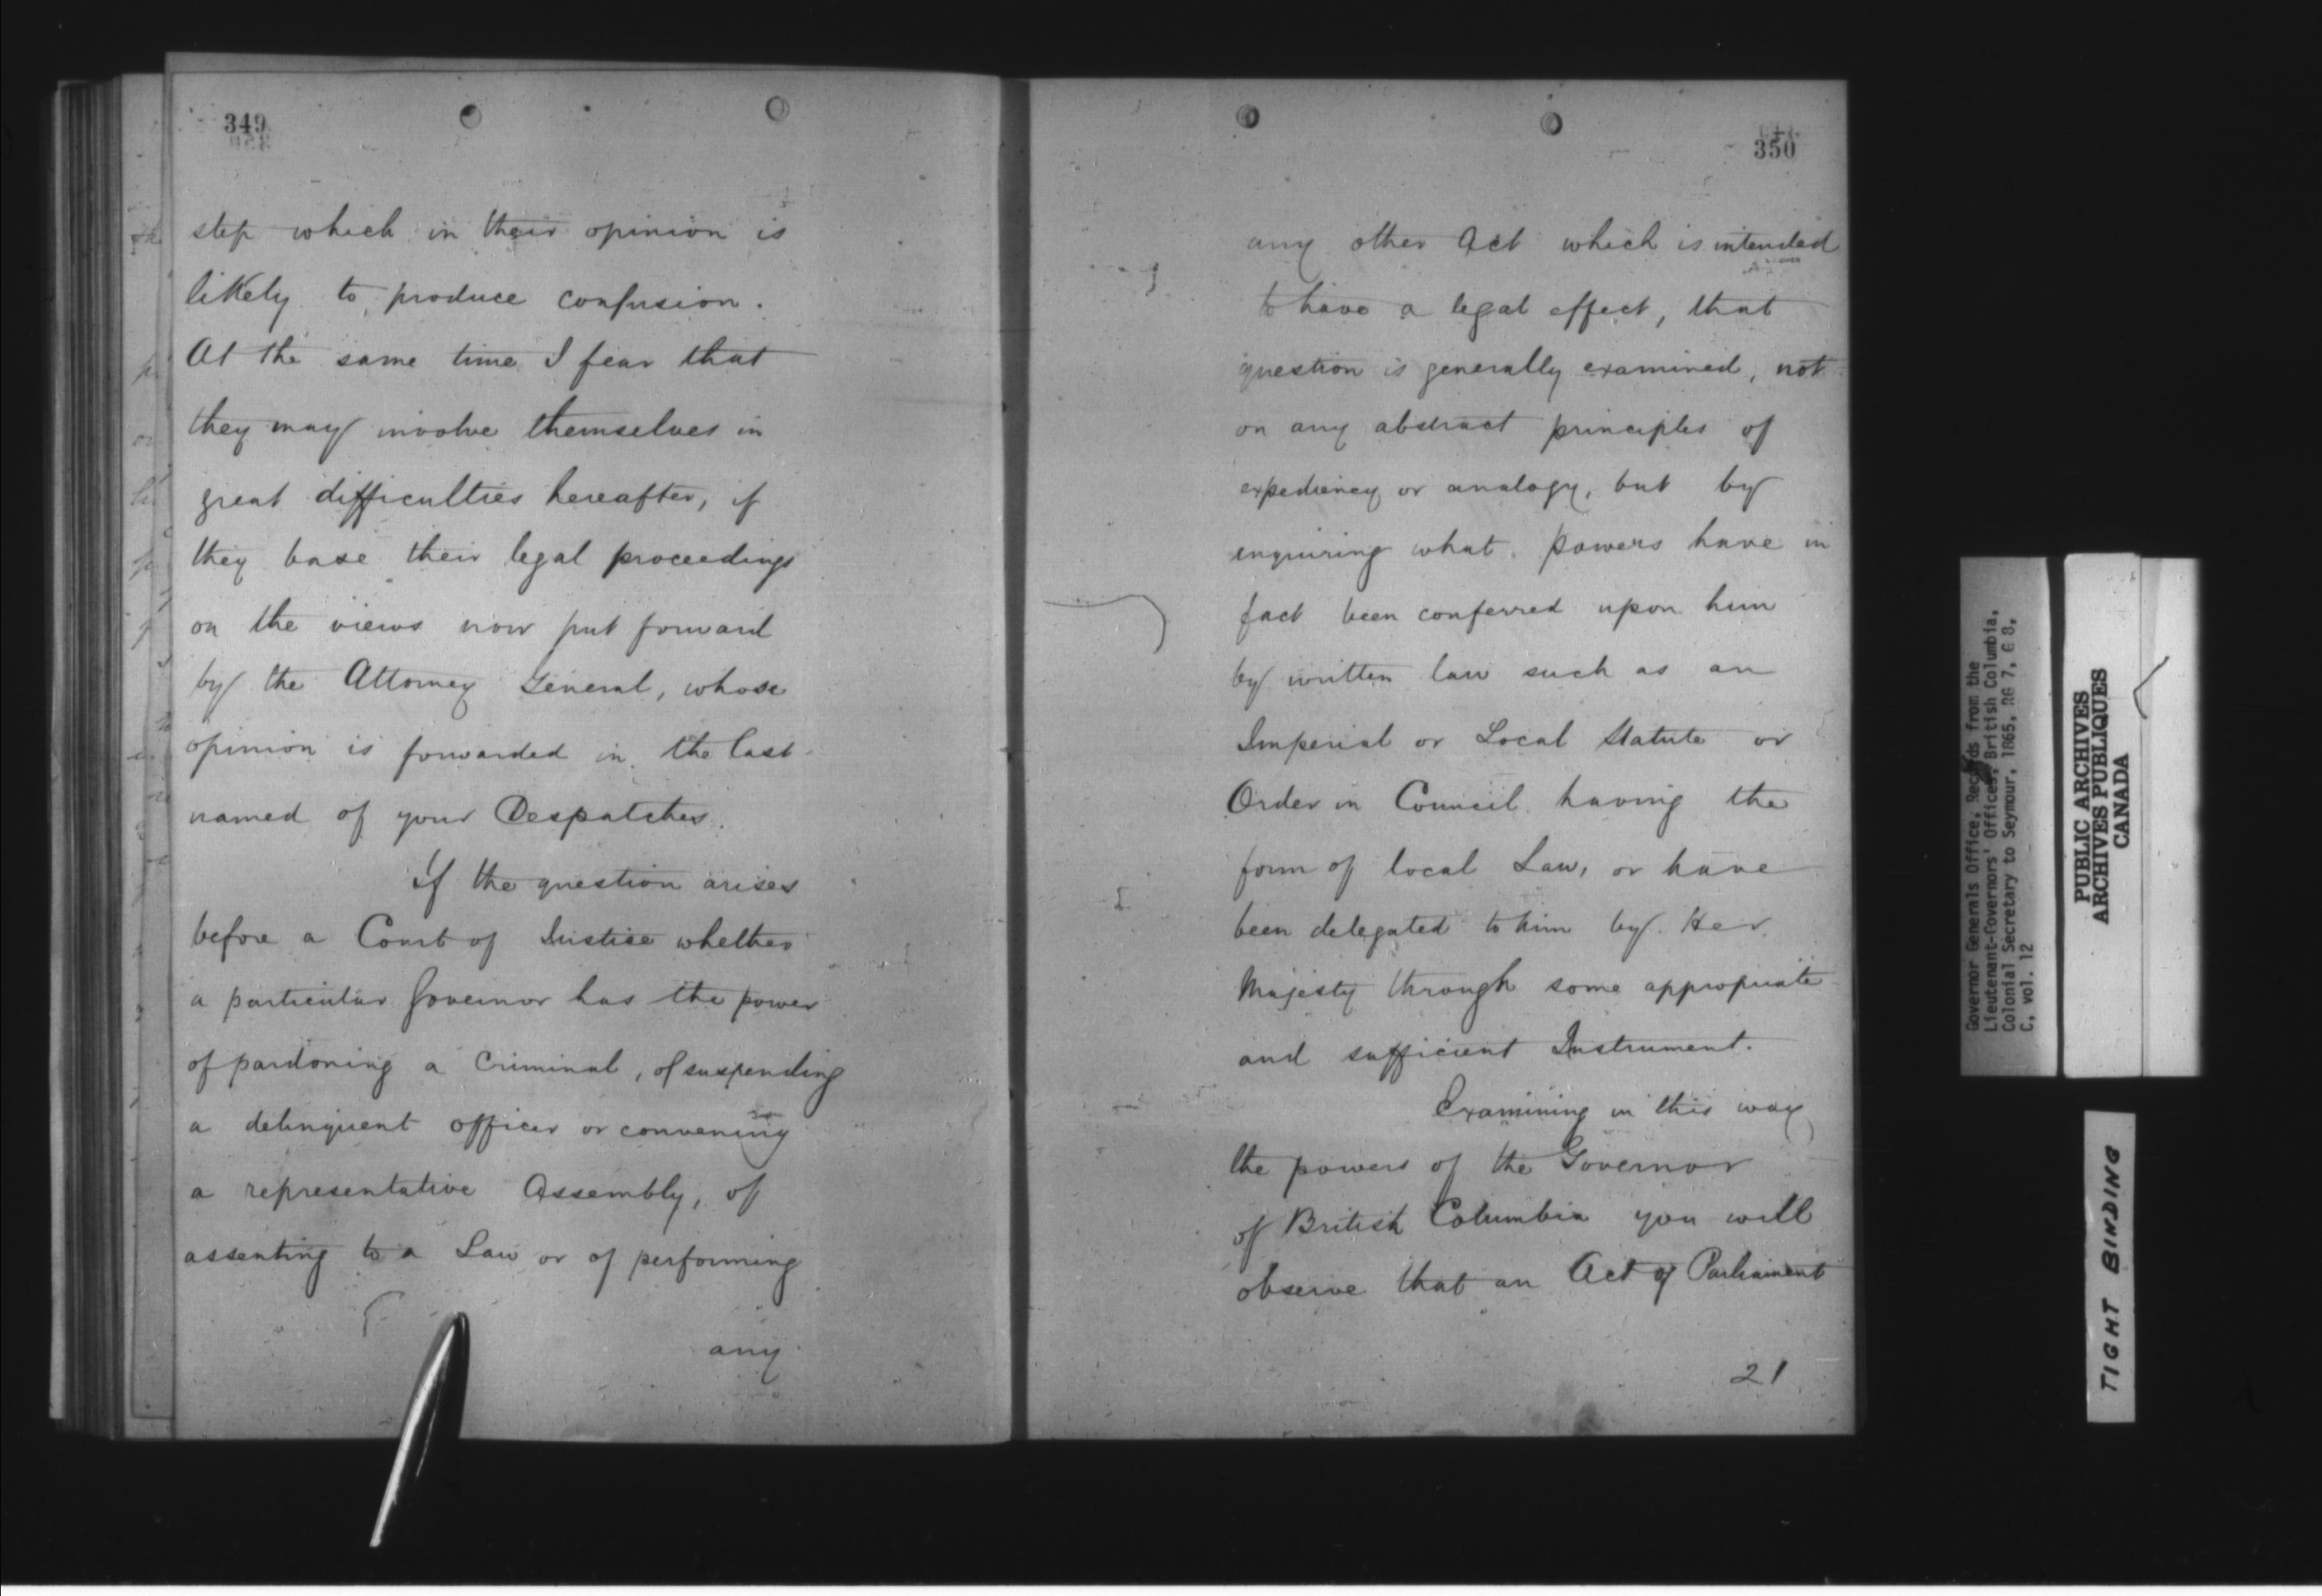 349
step which in their opinion is
likely to produce confusion.
At the same time I fear that
they may involve themselves in
great difficulties hereafter, if
they base their legal proceedings
on the views now put forward
by the Attorney General, whose
opinion is forwarded in the last
named of your Despatches.
If the question arises
before a Court of Justice whether
a particular Governor has the power
of pardoning a Criminal, of suspending
a delinquent officer or convening
a representative Assembly, of
assenting to a Law or of performing
any
350
any other Act which is intended
to have a legal effect, that
question is generally examined, not
on any abstract principles of
expediency or analogy, but by
enquiring what powers have in
fact been conferred upon him
by written law such as an
Imperial or Local Statute or
Order in Council having the
form of local Law, or have
been delegated to him by Her
Majesty through some appropriate
and sufficient Instrument.
Examining in this way
the powers of the Governor
of British Columbia you will
observe that an Act of Parliament
21
Governor Generals Office, Records from the
Lieutenant-Governors' Offices, British Columbia,
Colonial Secretary to Seymour, 1865, RG 7, G 8,
C, vol. 12
PUBLIC ARCHIVES
ARCHIVES PUBLIQUES
CANADA
TIGHT BINDING